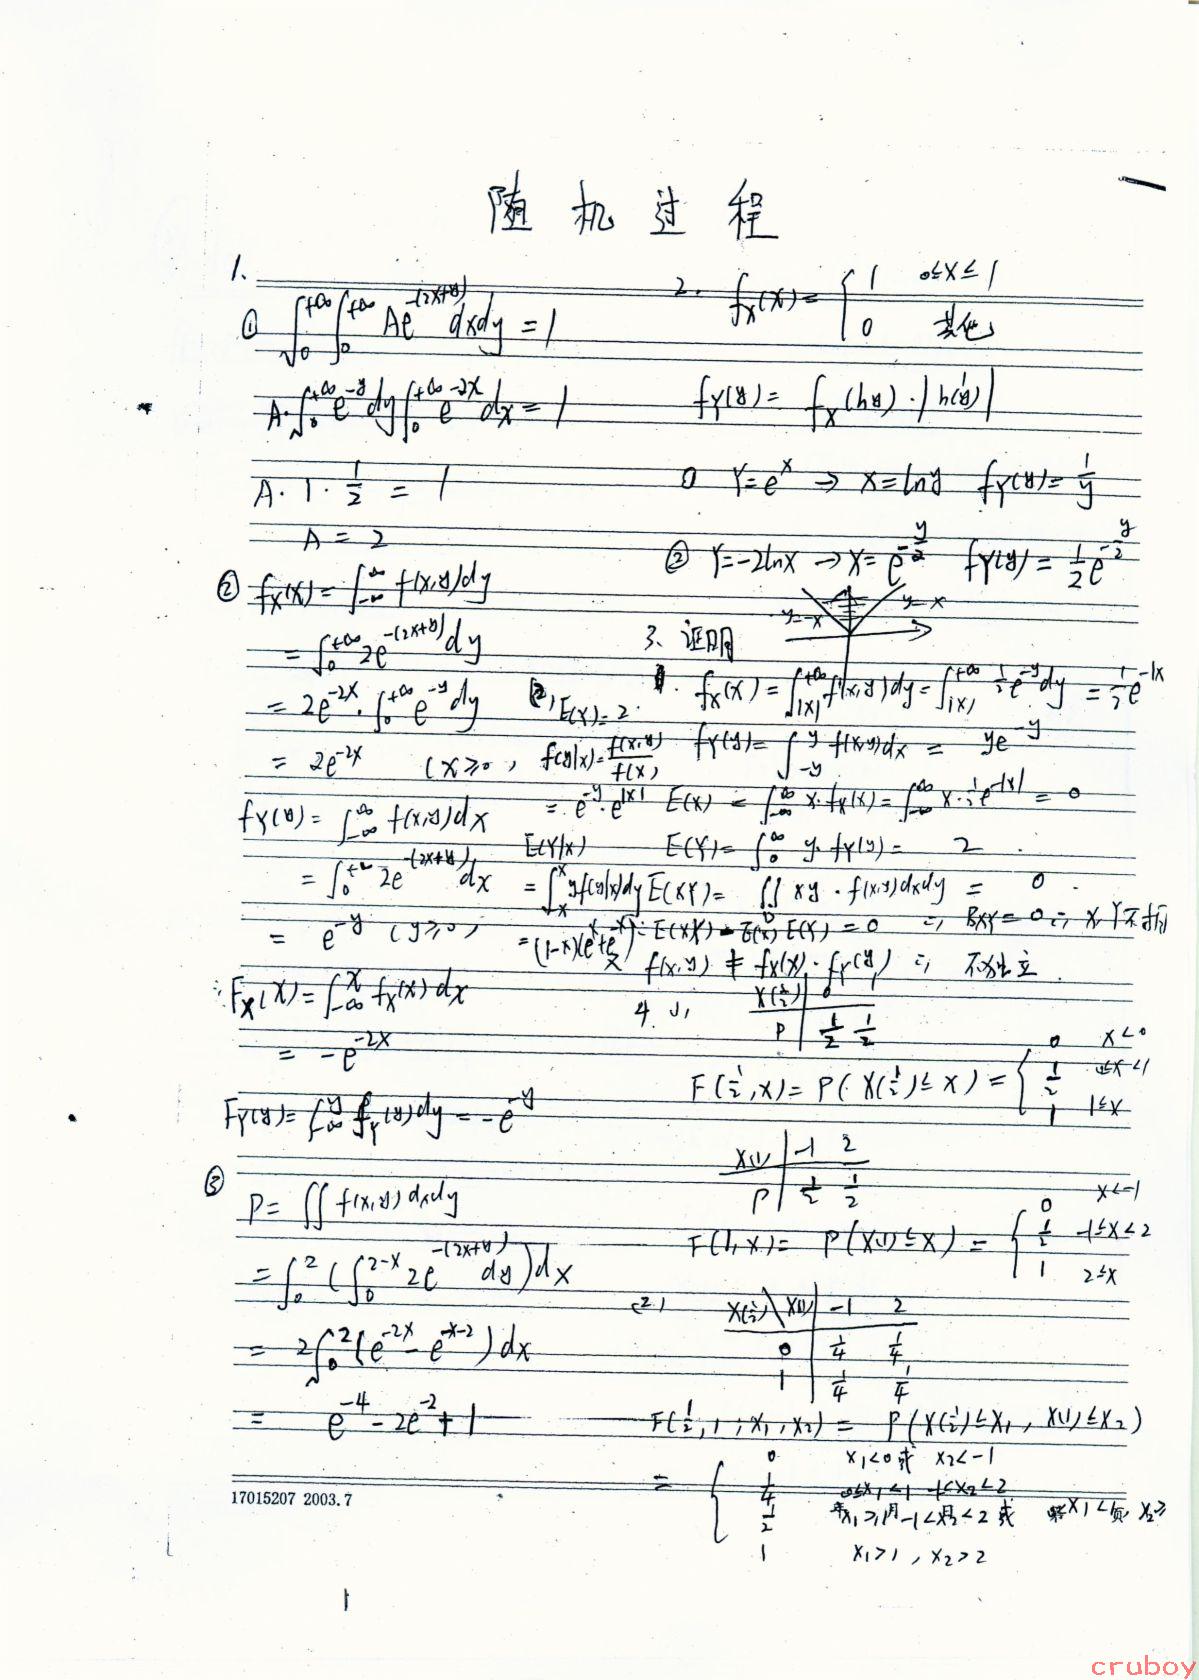 随机过程
1.
① ∫₀^{+∞}∫₀^{+∞} Ae^{-(2x+y)}dxdy = 1
A·∫₀^{+∞}e^{-y}dy∫₀^{+∞}e^{-2x}dx = 1
A·1·1/2 = 1
A = 2
② fX(x) = ∫_{-∞}^{∞} f(x,y)dy
= ∫₀^{+∞} 2e^{-(2x+y)}dy
= 2e^{-2x}·∫₀^{+∞} e^{-y}dy
= 2e^{-2x} (x≥0)
fY(y) = ∫_{-∞}^{∞} f(x,y)dx
= ∫₀^{+∞} 2e^{-(2x+y)}dx
= e^{-y} (y≥0)
∴ FX(x) = ∫_{-∞}^{x} fX(x)dx
= -e^{-2x}
FY(y) = ∫_{-∞}^{y} fY(y)dy = -e^{-y}
③
P = ∬ f(x,y)dxdy
= ∫₀²(∫₀^{2-x} 2e^{-(2x+y)}dy)dx
= 2∫₀²(e^{-2x} - e^{-x-2})dx
= e^{-4} - 2e^{-2} + 1
17015207 2003.7
2. fX(x) = { 1 0≤x≤1
0 其他
fY(y) = fX(hy)·|h'(y)|
① Y=e^x → X=lny fY(y)=1/y
② Y=-2lnX → X=e^{-y/2} fY(y)=1/2 e^{-y/2}
y=-x y=x
3、证明
1. fX(x) = ∫_{|x|}^{+∞} f(x,y)dy = ∫_{|x|}^{+∞} 1/2 e^{-y}dy = 1/2 e^{-|x|}
fY(y) = ∫_{-y}^{y} f(x,y)dx = ye^{-y}
E(X) = ∫_{-∞}^{∞} x·fX(x) = ∫_{-∞}^{∞} x·1/2 e^{-|x|} = 0
E(Y) = ∫₀^{∞} y·fY(y) = 2
E(XY) = ∬ xy·f(x,y)dxdy = 0
∴ E(XY) - E(X)E(Y) = 0 ∴ BXY=0 ∴ X,Y不相
f(x,y) ≠ fX(x)·fY(y) ∴ 不独立
(2) E(Y)=2
f(y|x) = f(x,y)/f(x)
= e^{-y}·e^{|x|}
E(Y|x)
= ∫ yf(y|x)dy
4.(1) X(1/2) | 0
P | 1/2 1/2
F(1/2,x) = P(X(1/2)≤x) = { 0 x<0
1/2 0≤x<1
1 1≤x
X(1) | -1 2
P | 1/2 1/2
F(1,x) = P(X(1)≤x) = { 0 x<-1
1/2 -1≤x<2
1 2≤x
(2) X(1/2)\X(1) | -1 2
0 | 1/4 1/4
1 | 1/4 1/4
F(1/2,1;x₁,x₂) = P(X(1/2)≤x₁, X(1)≤x₂)
= { 0 x₁<0或 x₂<-1
1/4 0≤x₁<1 -1<x₂<2
1/2 x₁≥1且-1<x₂<2 或
1 x₁>1, x₂>2
1
cruboy